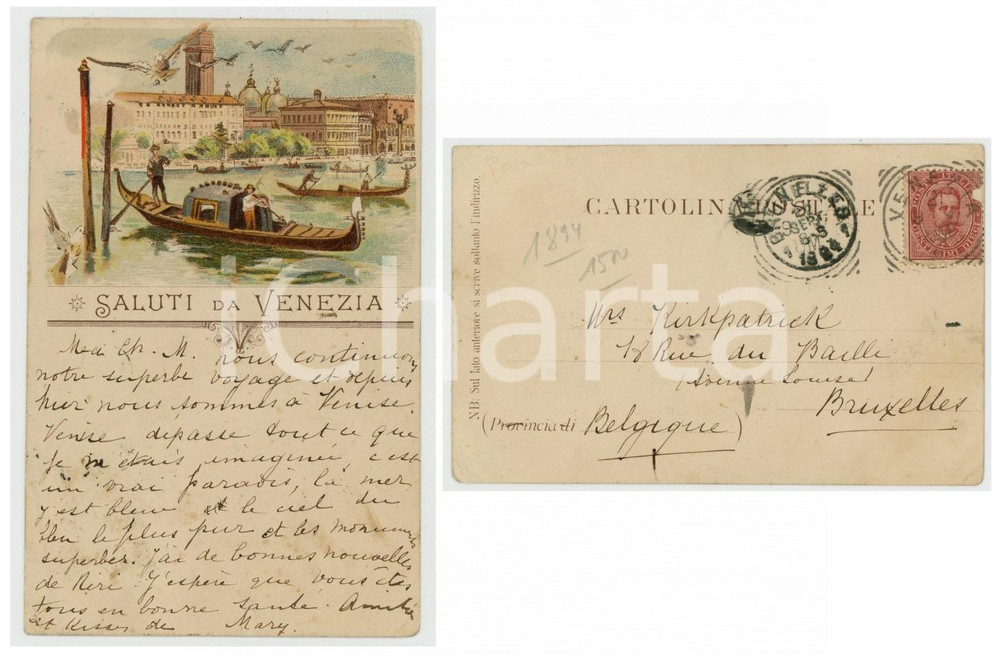 SALUTI DA VENEZIA
nous continuons
notre superbe voyage et depuis
hier nous sommes à Venise.
Venise depasse tout ce que
je m'étais imaginée, c'est
un vrai paradis, la mer
y est bleue et le ciel du
bleu le plus pur et les monuments
superbes. J'ai de bonnes nouvelles
de Riri. J'espère que vous êtes
tous en bonne santé. Amitiés
et Kisses de Mary.
iCharta
CARTOLINA POSTALE
NB. Sul lato anteriore si scrive soltanto l'indirizzo.
1894
1500
BRUXELLES
SEPT
VENEZIA
Mrs Kirkpatrick
18 Rue du Baille
(Avenue Louise)
Bruxelles
(Provincia di Belgique)